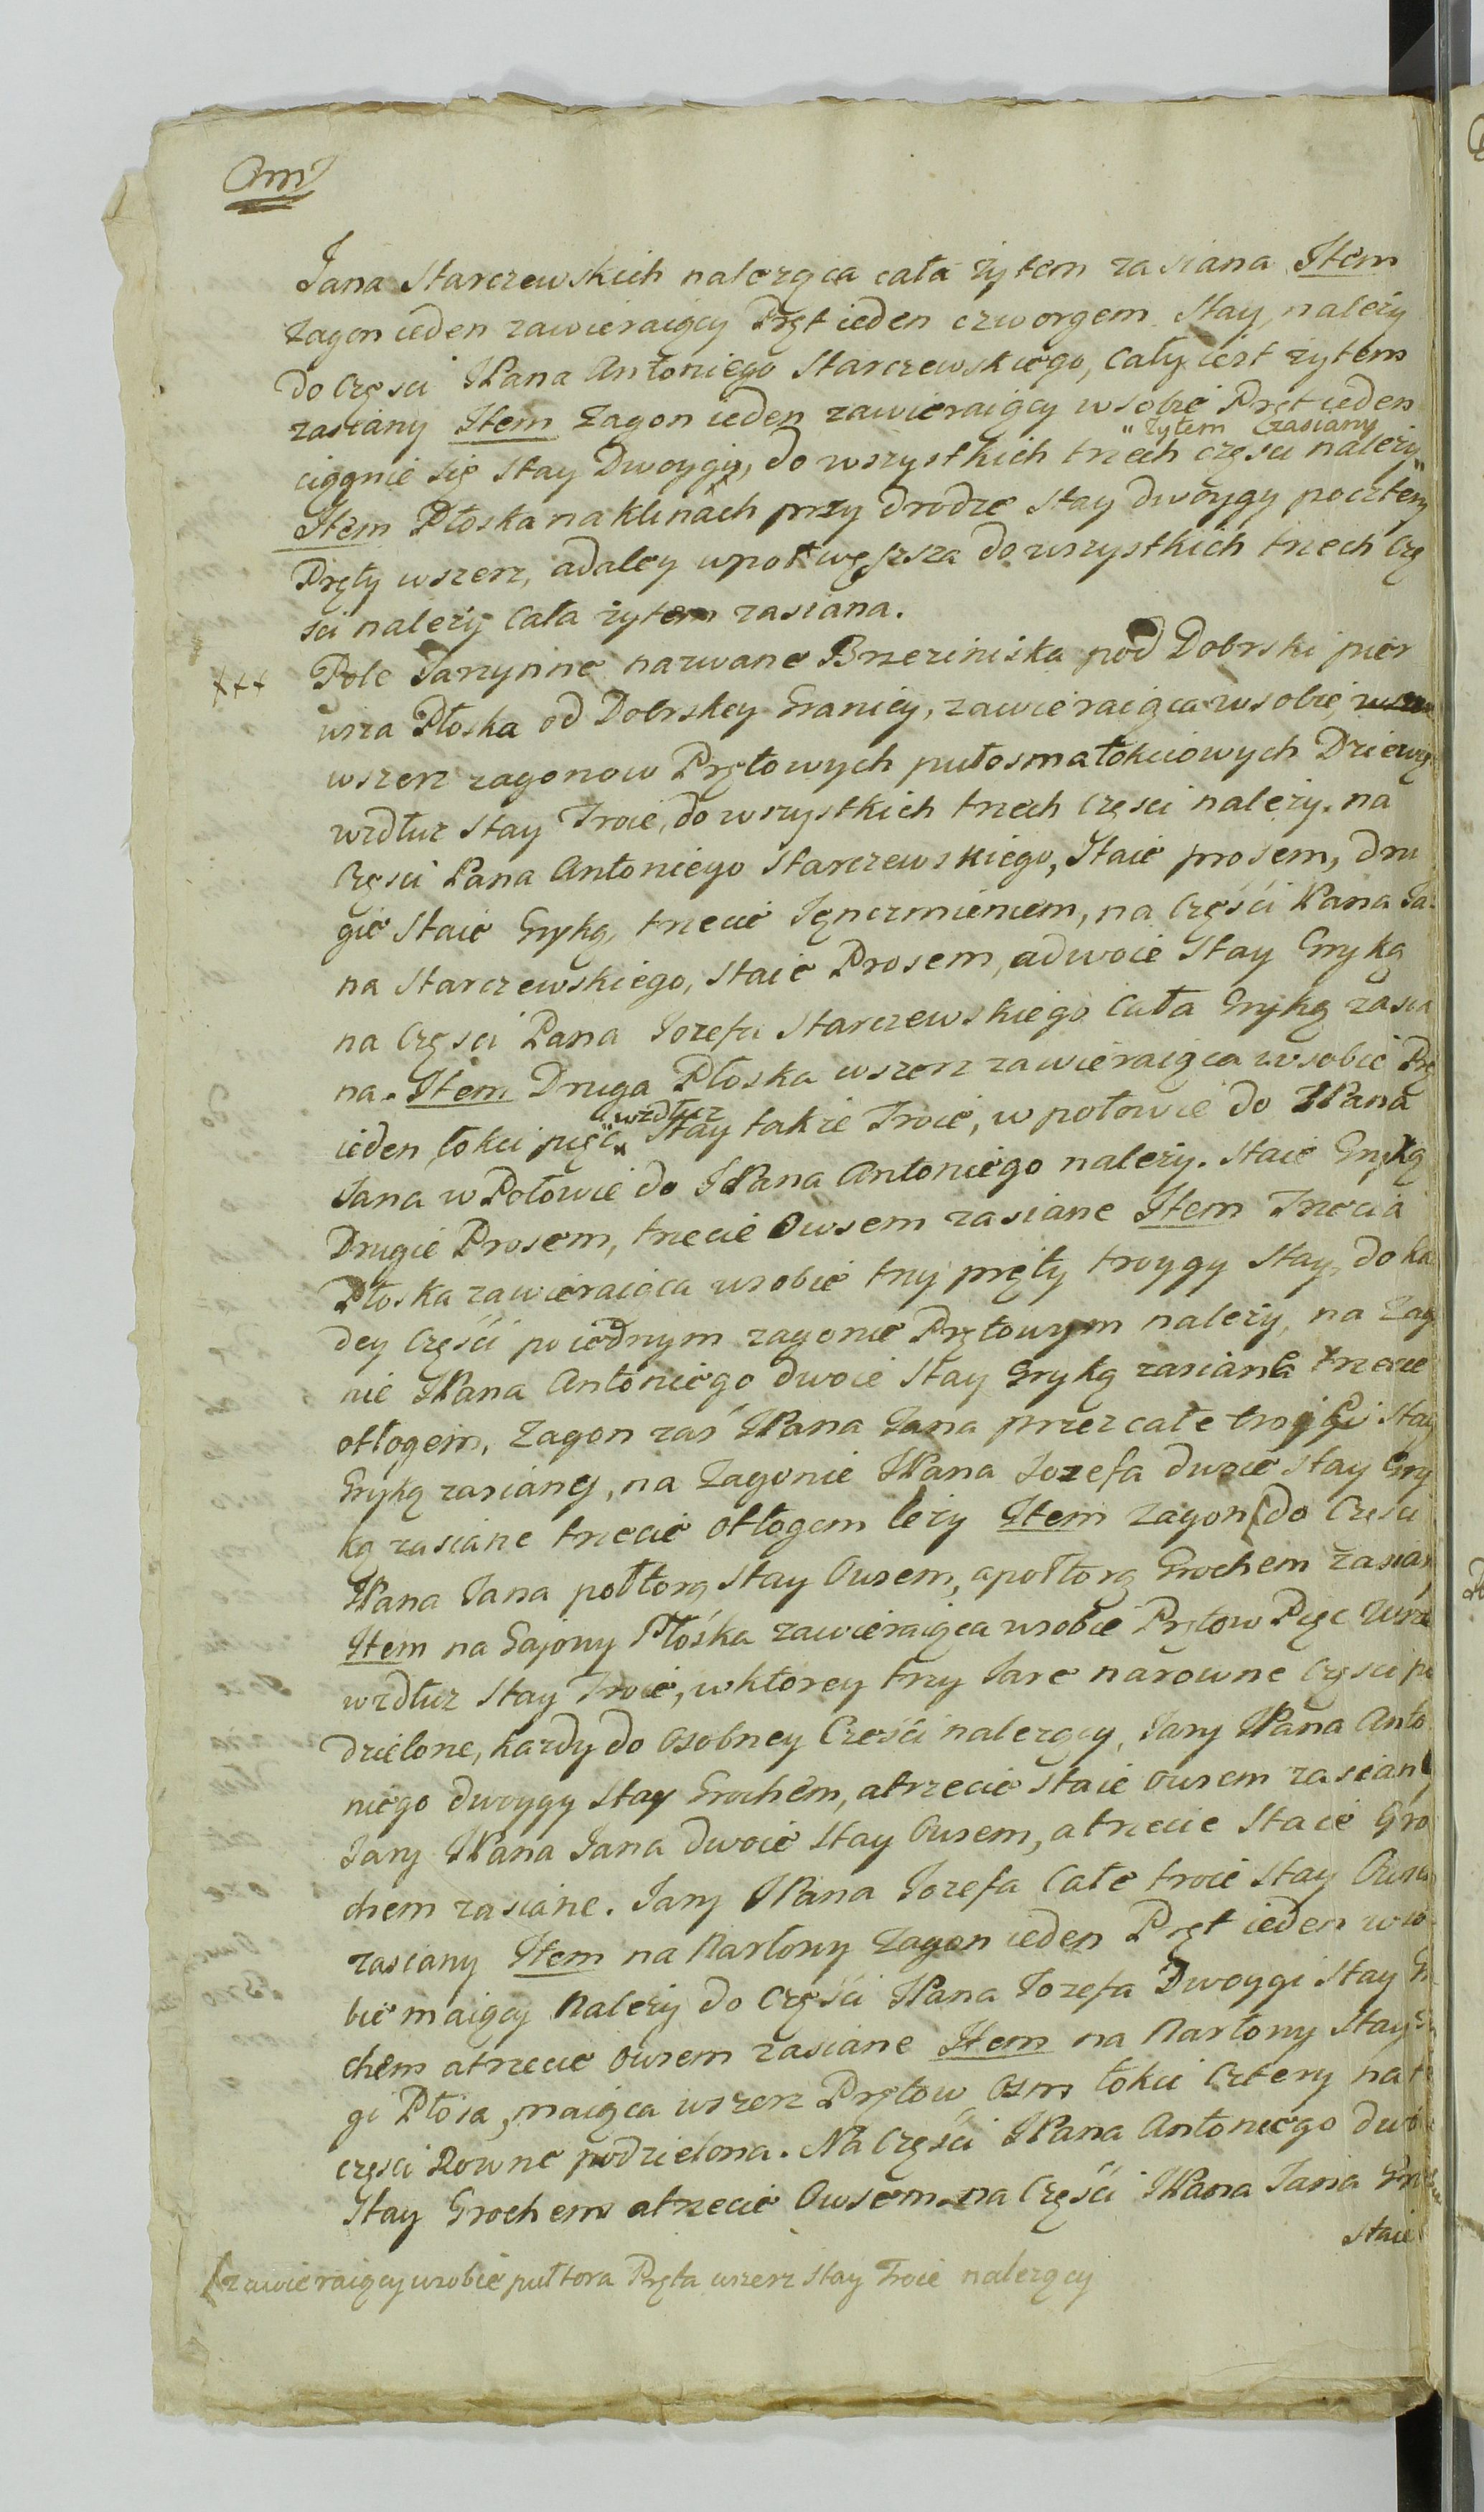 Jana Starczewskich należąca cała żytem zasiana Item
Zagon ieden zawieraiący Pręt ieden czworgem Stay, należy
do Częsci JPana Antoniego Starczewskiego, cały iest żytem
zasiany Item Zagon ieden zawieraiący w sobie Pręt ieden
"żytem zasiany
ciągnie się Stay Dwoygiy, do wszystkich trzech częsci należy"
Item Płoska na klinach przy drodze Stay dwoygy poczter
Pręty wszerz, a daley wpoł węższa do wszystkich trzech Czę
sci należy Cała żytem zasiana.
+++ Pole Jarzynne nazwane Brzeziniska pod Dobrski pier
wsza Płoska od Dobrskey Granicy, zawieraiąca w sobie
wszerz zagonow Prętowych pułosmałokciowych Dziewię
wzdłuz Stay Troie, do wszystkich trzech Częsci należy. na
Częsci Pana Antoniego Starczewskiego, Staie prosem, dru
gie Staie Gryką, trzecie Jęnczmieniem, na Częśći Pana Ja
na Starczewskiego, Staie Prosem, a dwoie Stay Gryką
na Częsci Pana Jozefa Starczewskiego Cała Gryką zasia
na. Item Druga Płoska wszerz zawieraiąca w sobie Prę
"wzdłuz
ieden łokci pięć Stay także Troie, w połowie do JPana
Jana w Połowie do JPana Antoniego należy. Staie Gryką
Drugie Prosem, trzecie Owsem zasiane Item Trzecia
Płoska zawieraiąca wsobie trzy pręty troygy Stay, do ka
dey Częśći po iednym zagonie Prętowym należy, na Zag
nie JPana Antoniego dwoie Stay Gryką zasiane trzecie
otłogem, Zagon zaś JPana Jana przez całe troygi Stay
Gryką zasiany, na Zagonie JPana Jozefa dwoie Stay Gry
ką zasiane trzecie otłogem leży Item Zagon do Częsci
JPana Jana połtorą Stay Owsem, a połtorą Grochem zasian
Item na Gajony Płoska zawieraiąca wsobie Prętow Pięc wsze
wzdłuz Stay Troie, w ktorey trzy Jare narowne Częsci po
dzielone, kazdy do osobney Częśći nalezący, Jary JPana Anto
niego dwoygy Stay Grochem, a trzecie Staie Owsem zasiane
Jary JPana Jana dwoie Stay Owsem, a trzecie Staie Gro
chem zasiane. Jary JPana Jozefa Całe troie Stay Owsem
zasiany Item na Karłony Zagon ieden Pręt ieden w so
bie maiący Należy do Częśći JPana Jozefa Dwoygi Stay Gro
chem a trzecie Owsem zasiane Item na Karłony Stay
gi Płosa, maiąca wszerz Prętow Osm łokci Cztery na
częsci Rowne podzielona. Na Częśći JPana Antoniego dwoie
Stay Grochem a trzecie Owsem na Częśći JPana Jana
Staie
zawieraiący wsobie pułtora Pręta wszerz Stay Troie należący